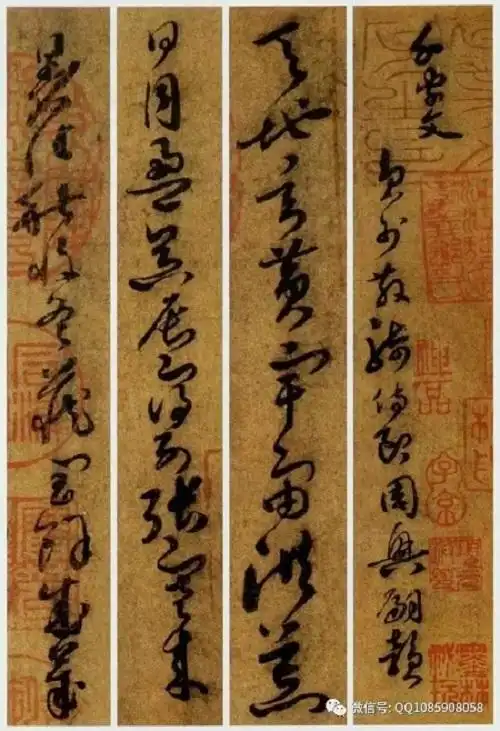 千字文
員外散騎侍郎周興嗣韻
天地玄黃宇宙洪荒
日月盈昃辰宿列張寒來
暑往秋收冬藏閏餘成歲
微信号: QQ1085908058